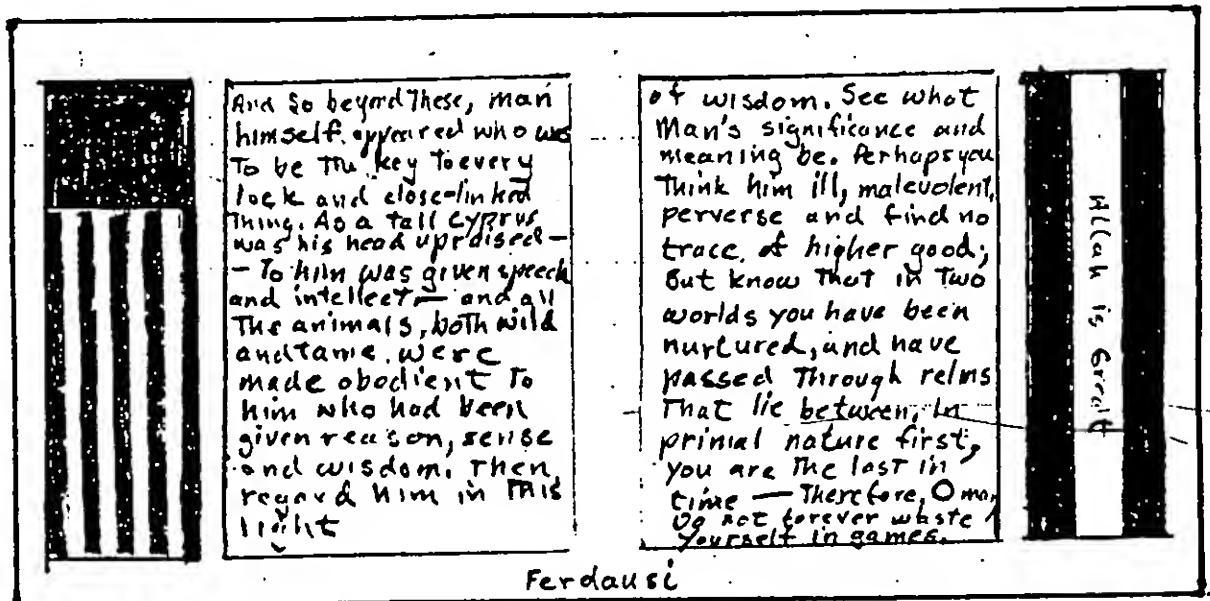 And So beyond These, man
himself appeared who was
To be The key To every
lock and close-linked
Thing. As a tall Cyprus
was his head upraised —
— To him was given speech
and intellect — and all
The animals, both wild
and tame, were
made obedient To
him who had been
given reason, sense
and wisdom. Then,
regard him in This
light
of wisdom. See what
Man's significance and
meaning be. Perhaps you
Think him ill, malevolent,
perverse and find no
trace of higher good;
But know That in Two
worlds you have been
nurtured, and have
passed Through relms
That lie between. In
primal nature first,
you are The last in
time — Therefore, O man
Do not forever waste
yourself in games.
Allah is Great
Ferdausi